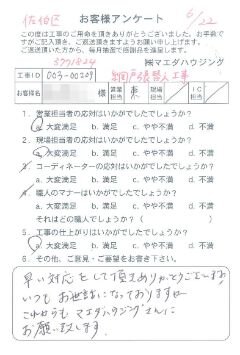 佐伯区
お客様アンケート
6/22
この度は工事のご用命を頂きありがとうございます。お手数ですがご記入頂き、ご返送頂きますようお願い申し上げます。
ご返送いただいた方から、毎月抽選で感謝品を進呈します。
3771824
㈱マエダハウジング
工事ID 003-00209 網戸張替え工事
お客様名 様 営業担当 現場担当 工事担当
1. 営業担当者の応対はいかがでしたでしょうか?
a. 大変満足 b. 満足 c. やや不満 d. 不満
2. 現場担当者の応対はいかがでしたでしょうか?
a. 大変満足 b. 満足 c. やや不満 d. 不満
3. コーディネーターの応対はいかがでしたでしょうか?
a. 大変満足 b. 満足 c. やや不満 d. 不満
4. 職人のマナーはいかがでしたでしょうか?
a. 大変満足 b. 満足 c. やや不満 d. 不満
それはどの職人でしょうか?( )
5. 工事の仕上がりはいかがでしたでしょうか?
a. 大変満足 b. 満足 c. やや不満 d. 不満
6. その他、ご意見・ご要望をお書き下さい。
早い対応をして頂きありがとうございます
いつもお世話になっておりますが
これからもマエダハウジングさんに
お願い致します。